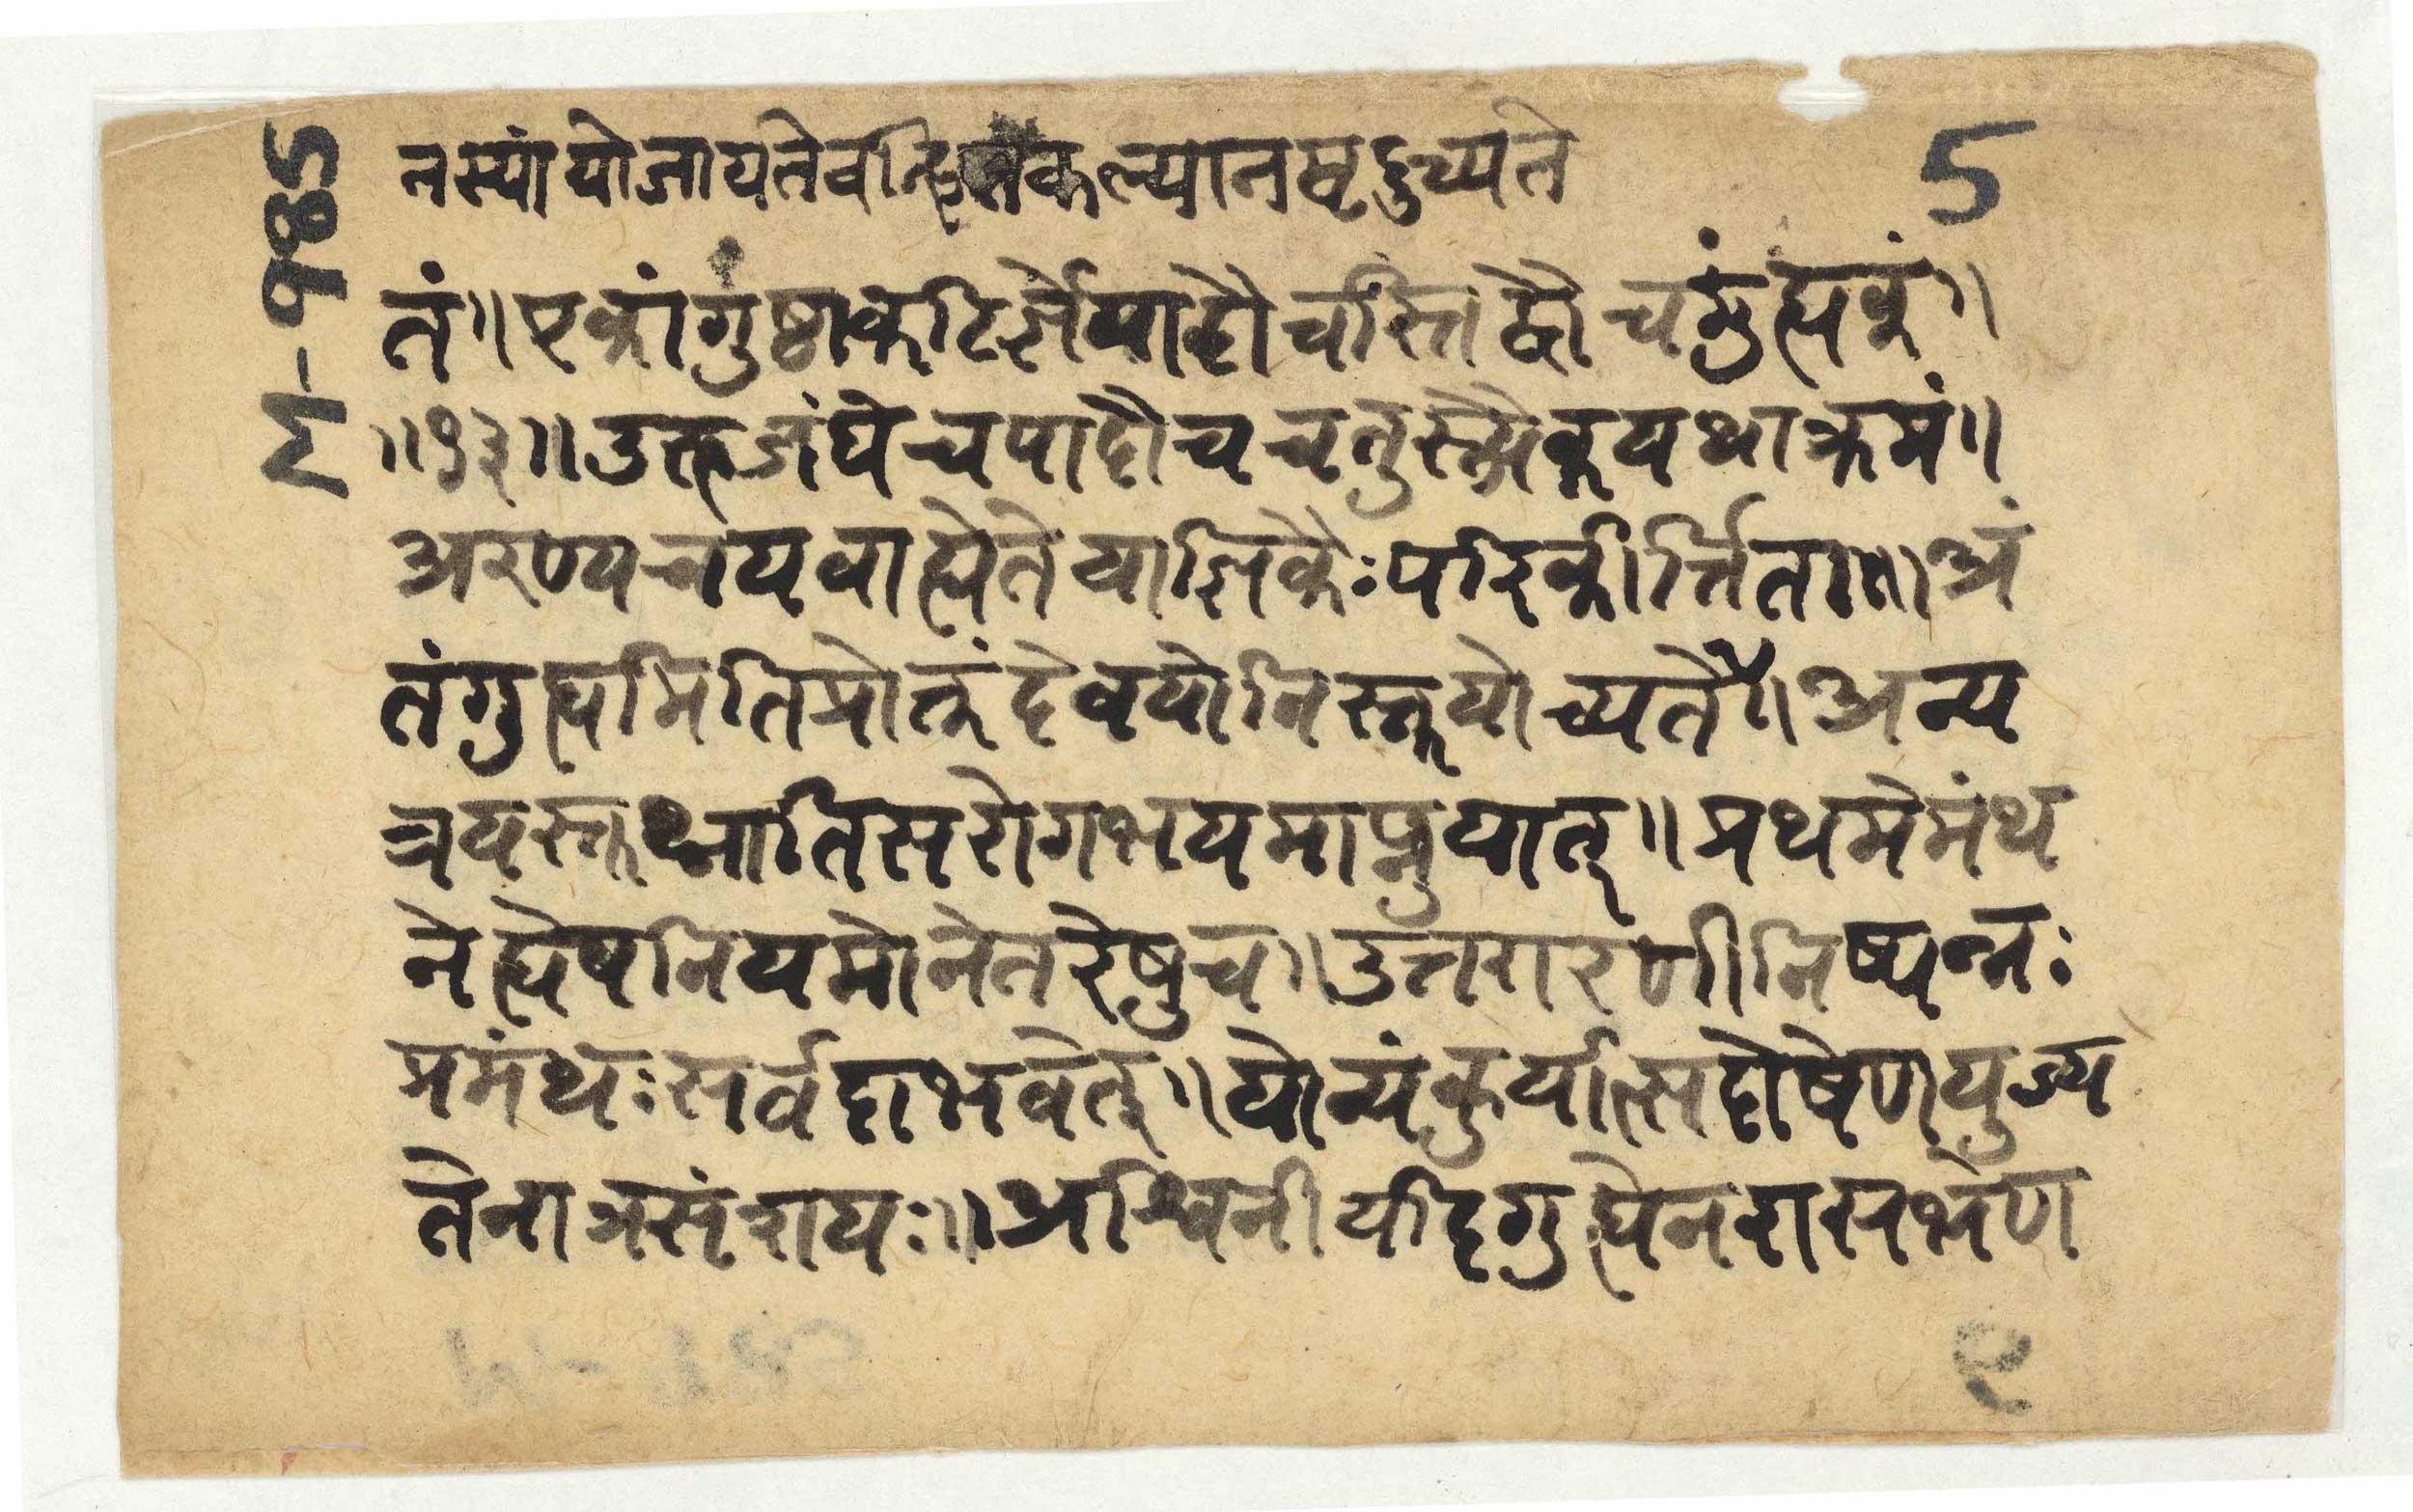 5
M-985
तस्यां यो जायते वन्हि कल्यानमृदुच्यते
तं॥ एकांगुष्ठाकटिर्ज्ञेया द्वौ वस्ति द्वौ च गुह्यकं॥
॥१३॥ उरू जंघे च पादौ च चतुस्त्र्येक यथाक्रमं॥
अरण्यवयवा ह्येते याज्ञिकैः परिकीर्त्तिता॥ अं
तं गुह्यमिति प्रोक्तं देवयोनिस्तु योच्यते॥ अन्य
त्र यस्तु थ्नाति स रोगभयमाप्नुयात्॥ प्रथमे मंथ
ने ह्येष नियमो नेतरेषु च॥ उत्तरारणी निष्पन्नः
प्रमंथः सर्वदा भवेत्॥ योन्यं कुर्यात्स दोषेण युज्य
ते नात्र संशयः॥ अश्विनी यदि गुह्येन रासभेण
९